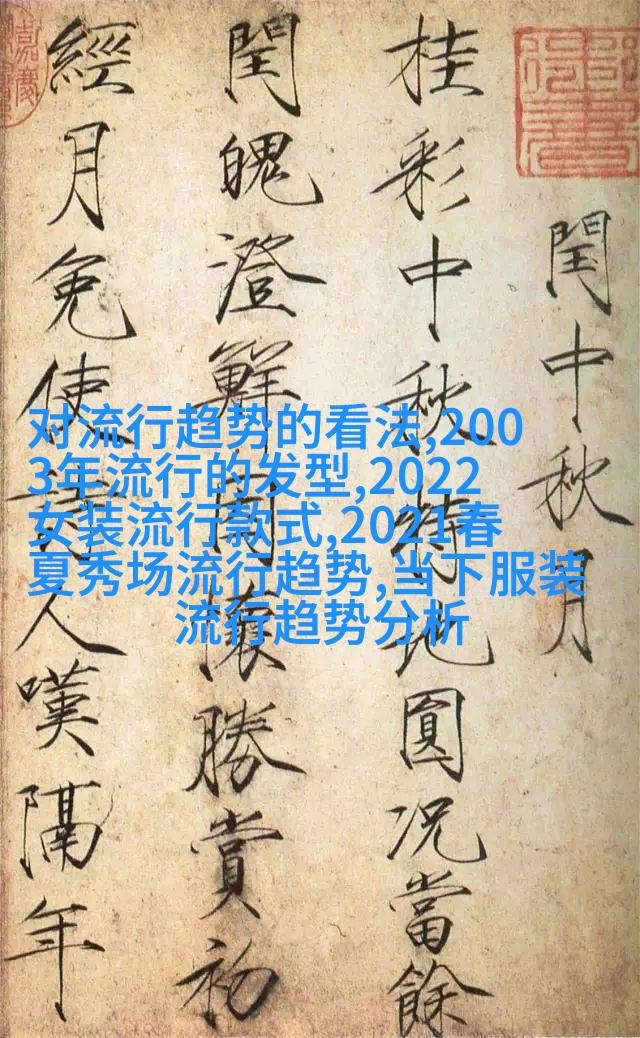 閏中秋月
桂彩中秋特地圓况當餘
閏魄澄鮮因懷勝賞初
經月免使詩人嘆隔年
对流行趋势的看法,200
3年流行的发型,2022
女装流行款式,2021春
夏秀场流行趋势,当下服装
流行趋势分析